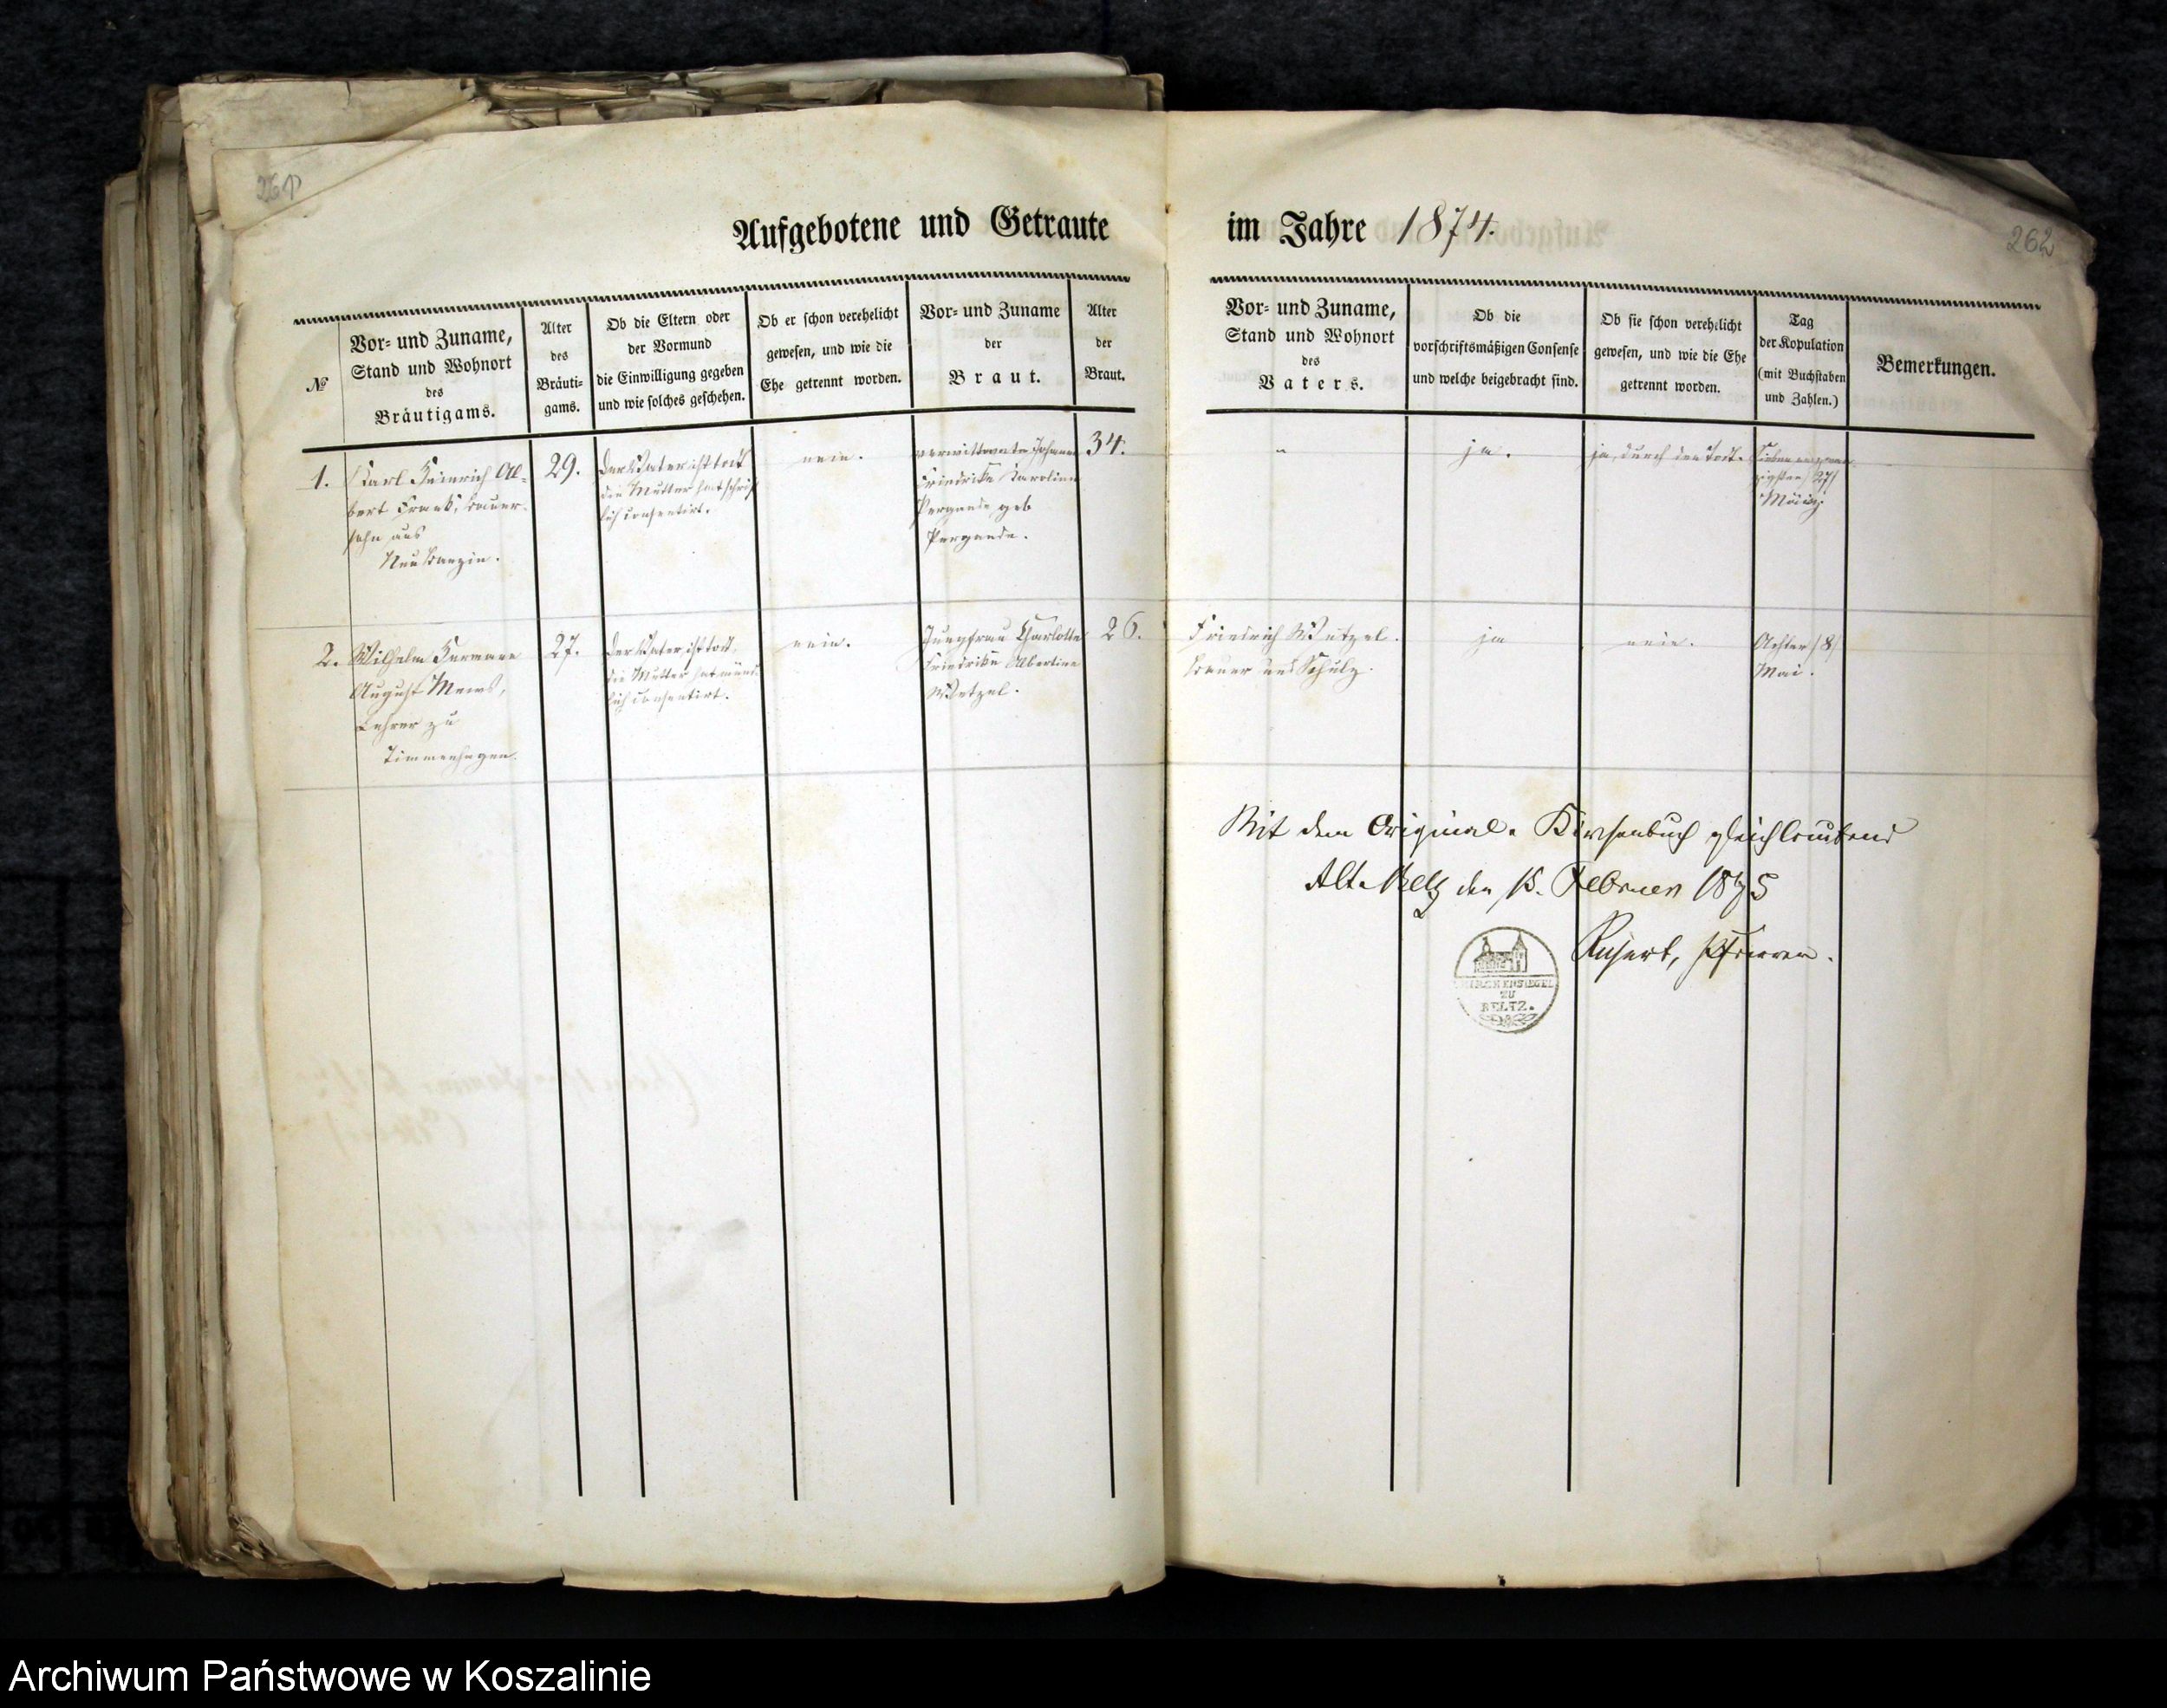 261
Aufgebotene und Getraute
№
Vor- und Zuname,
Stand und Wohnort
des
Bräutigams.
Alter
des
Bräuti-
gams.
Ob die Eltern oder
der Vormund
die Einwilligung gegeben
und wie solches geschehen.
Ob er schon verehelicht
gewesen, und wie die
Ehe getrennt worden.
Vor- und Zuname
der
Braut.
Alter
der
Braut.
1.
Karl Heinrich Al-
bert Frank, Bauer-
sohn aus
Neu Banzin.
29.
Der Vater ist todt
die Mutter hat schrift
lich consentirt.
nein.
verwittwete Johanne
Friedrike Karoline
Pergande geb
Pergande.
34.
2.
Wilhelm Hermann
August Mews,
Lehrer zu
Timmenhagen.
27.
Der Vater ist todt,
die Mutter hat münd
lich consentirt.
nein.
Jungfrau Charlotte
Friedrike Albertine
Wetzel.
26.
im Jahre 1874.
262
Vor- und Zuname,
Stand und Wohnort
des
Vaters.
Ob die
vorschriftsmäßigen Consense
und welche beigebracht sind.
Ob sie schon verehelicht
gewesen, und wie die Ehe
getrennt worden.
Tag
der Kopulation
(mit Buchstaben
und Zahlen.)
Bemerkungen.
"
ja.
ja, durch den Todt.
Sieben und zwan
zigsten /27/
März
Friedrich Wetzel.
Bauer und Schulz.
ja
nein.
Achten /8/
Mai.
Mit dem Original-Kirchenbuch gleichlautend
Alt-Belz den 15. Februar 1875
Pfarrer.
KIRCHENSIEGEL
ZU
BELTZ.
Archiwum Państwowe w Koszalinie